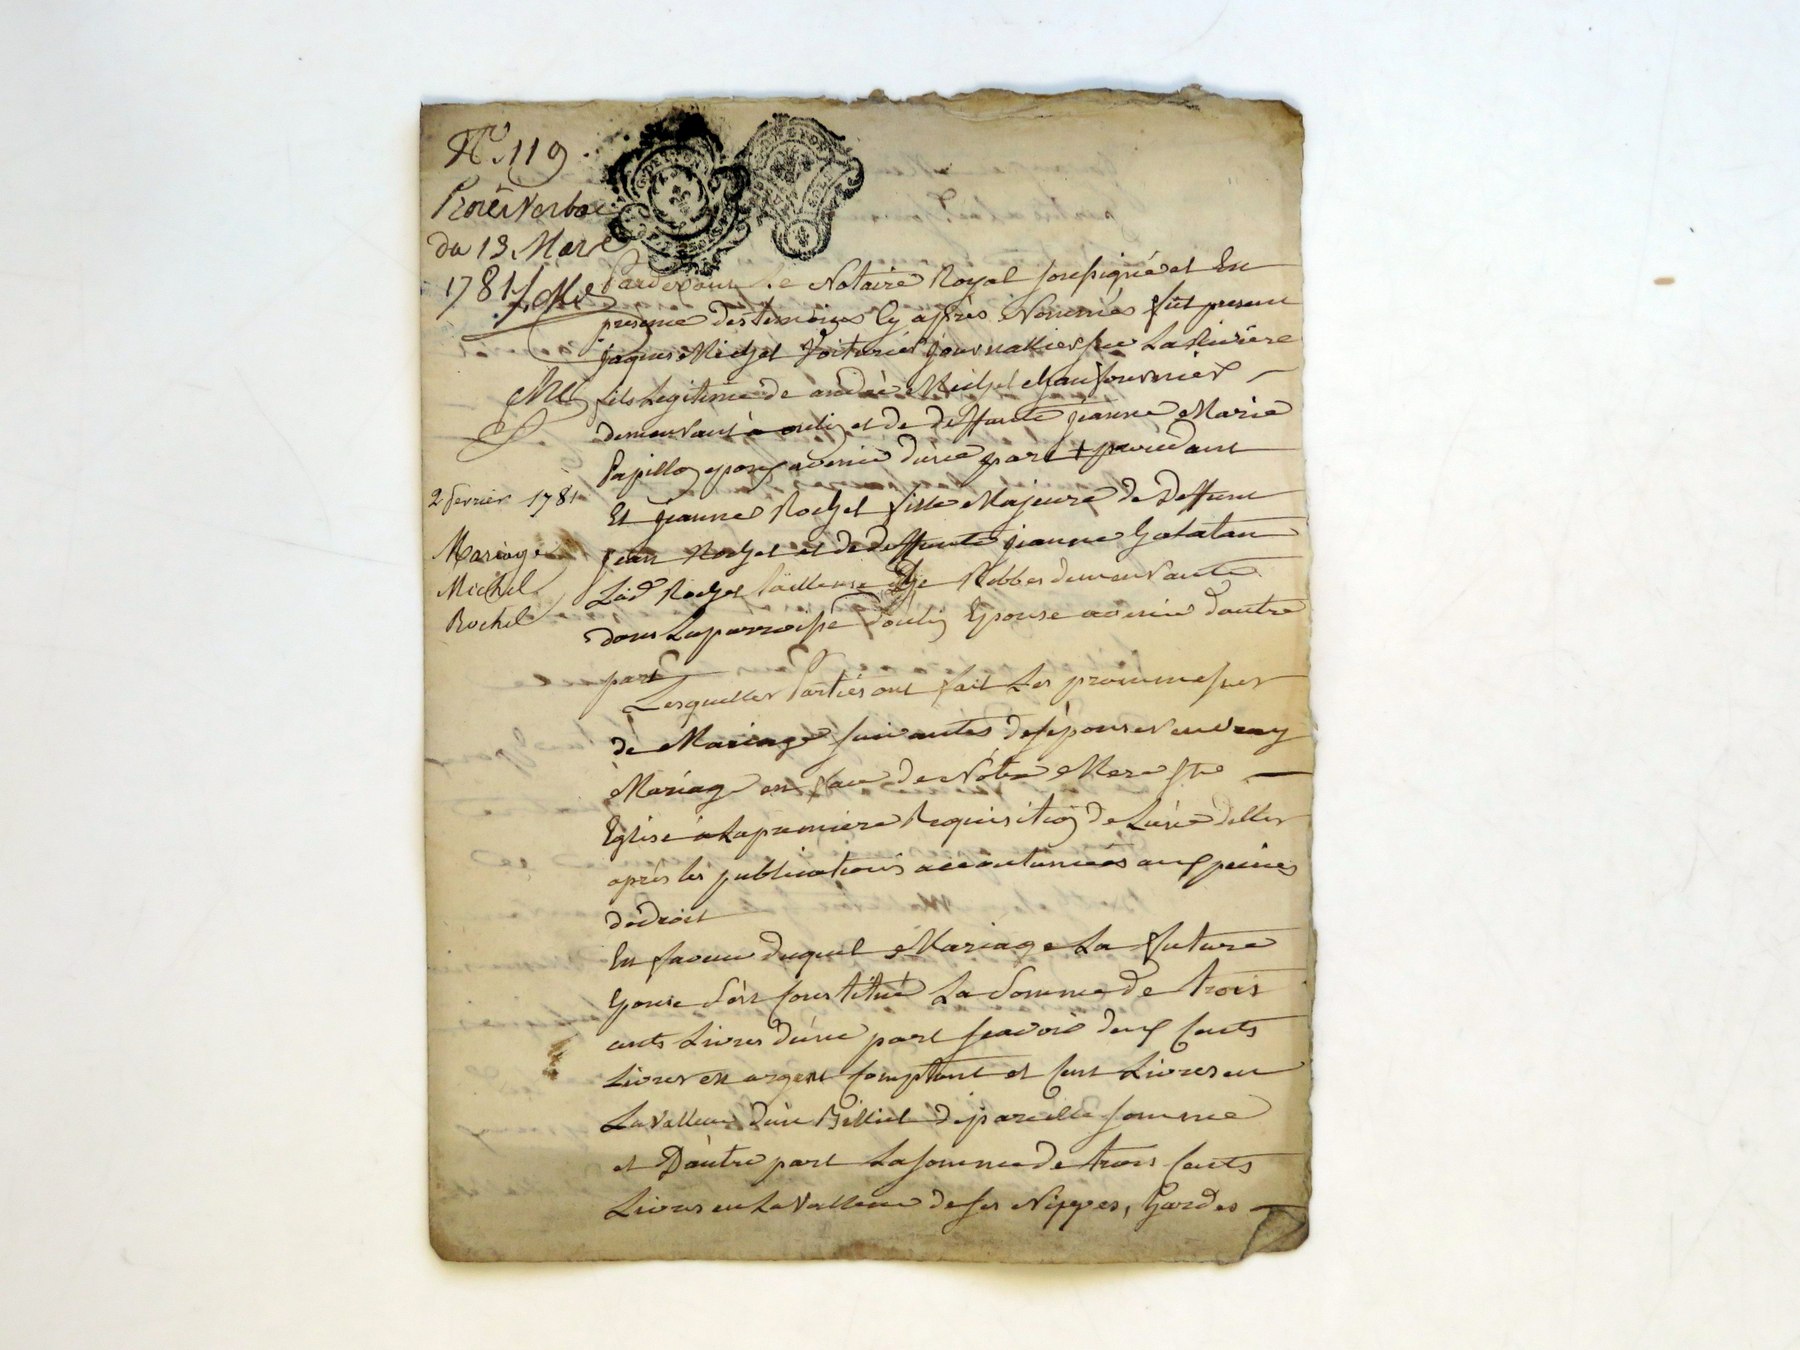 N.° 119
Procès Verbal
du 13. Mars
1781
2 fevrier 1781
Mariage
Michel
Rochet
Pardevant Le Notaire Royal soussigné et En
presence des temoins Cy après Nommés fut present
jaques Michel Voiturier journallier sur La Riviere
fils Legitime de andré Michel chaufournier
demeurant a oulin et de deffunte jeanne Marie
Papillon epoux avenir d'une part + procedant
Et jeanne Rochet fille Majeure de Deffunt
jean Rochet et de deffunte jeanne
Lad Rochet tailleuse de Robbes demeurante
dans La parroisse d'oulin Epouse avenir d'autre
part
Lesquelles Parties ont fait Les promesses
de Mariage suivantes de s'épouser en vray
Mariage en face de Nôtre Mere ste
Eglise a La premiere Requisition de L'une d'elles
après les publications accoutumées aux peines
de droit
En faveur duquel Mariage La future
Epouse s'est Constitué La Somme de trois
cents Livres d'une part sçavoir deux Cents
Livres en argent Comptant et Cent Livres en
La valleur d'un Billiet de pareille somme
et D'autre part La somme de trois Cents
Livres en La Valleur de ses Nippes, hardes